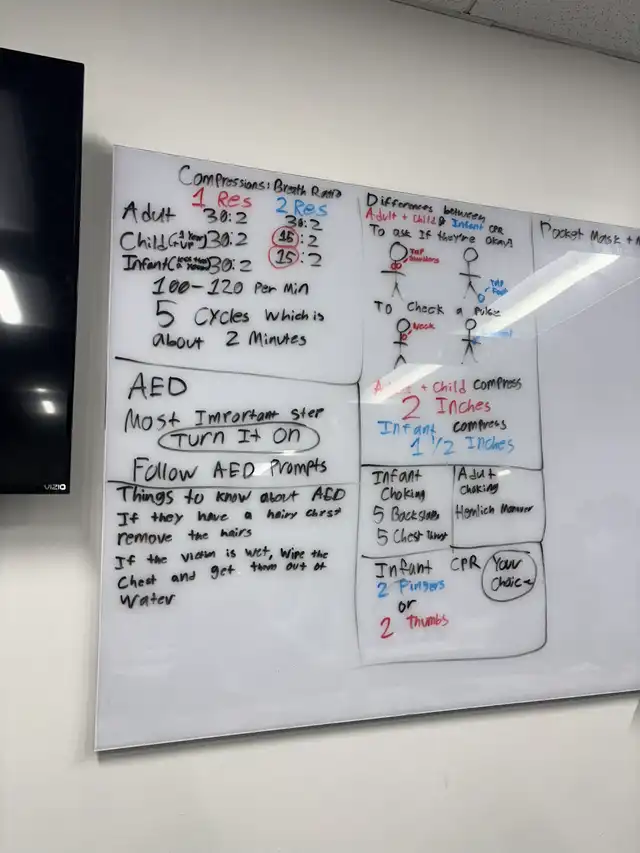 Compressions: Breath Ratio
1 Res 2 Res
Adut 30:2 30:2
Child 30:2 15:2
Infant 30:2 15:2
100-120 Per Min
5 Cycles Which is
about 2 Minutes
AED
Most Important step
Turn It On
Follow AED Prompts
Things to know about AED
If they have a hairy chest
remove the hairs
If the victim is wet, wipe the
Chest and get them out of
Water
Differences between
Adult + Child & Infant CPR
To ask If they're okay?
Tap
Shoulders
Tap
Foot
To Check a Pulse
Neck
Adult + Child compress
2 Inches
Infant compress
1 1/2 Inches
Infant
Choking
5 Back slaps
5 Chest Thrust
Adult
Choking
Infant CPR
2 Fingers
or
2 Thumbs
Your
Choice
Pocket Mask +
VIZIO